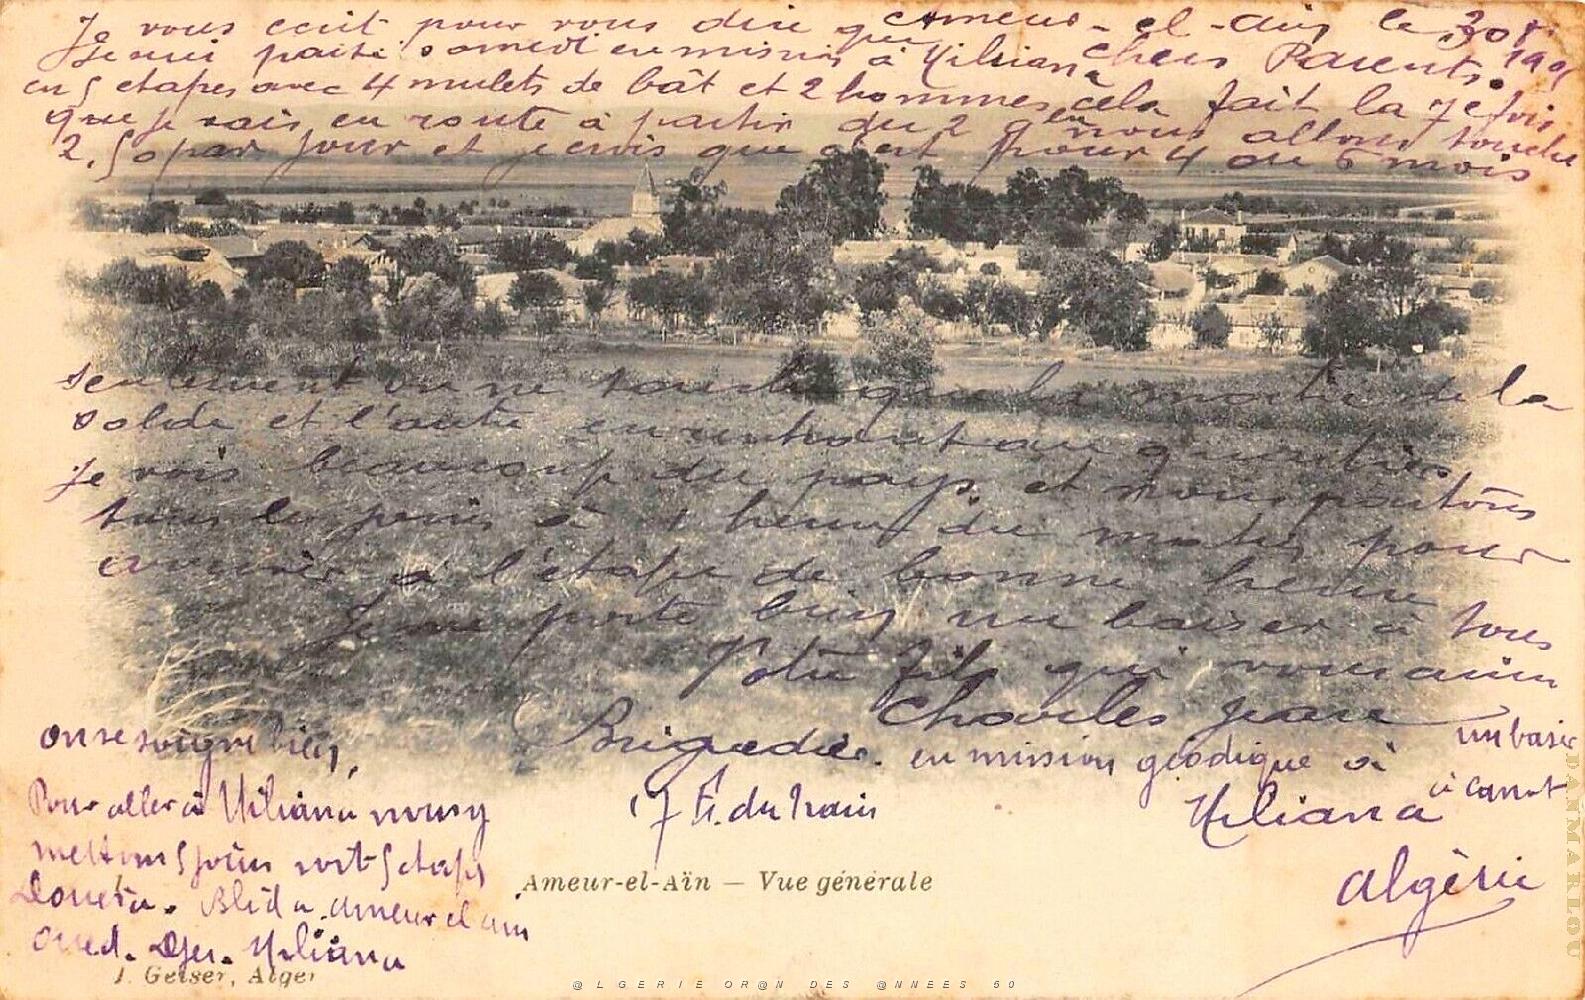 Ameur-el-ain le 30 8
190
Chers Parents.
Je vous ecrit pour vous dire que
Je suis partis samedi en mission à Miliana
en 5 etapes avec 4 mulets de bât et 2 hommes cela fait la 7e fois
que je vais en route à partir du 2 nous allons touche
2,50 par jour et je crois que c'est pour 4 ou 5 mois
seulement on ne touche que la moitié de la
solde et l'autre en rentrant au quartier
Je vois beaucoup du pays et nous partons
tous les jours à 1 heure du matin pour
arriver à l'étape de bonne heure
Je me porte bien un baiser à tous
Votre fils qui vous aime
Charles Jean
Brigadier en mission géodique à
17 E. du Train
Miliana
algérie
un baiser
à carnot
on se soigne bien,
Pour aller à Miliana nous y
mettons 5 jours soit 5 etapes
Douera. Blida. ameur el ain
oued. Djer. Miliana
Ameur-el-Aïn — Vue générale
J. Geiser, Alger
@LGERIE OR@N DES @NNEES 50
DANMARLOU